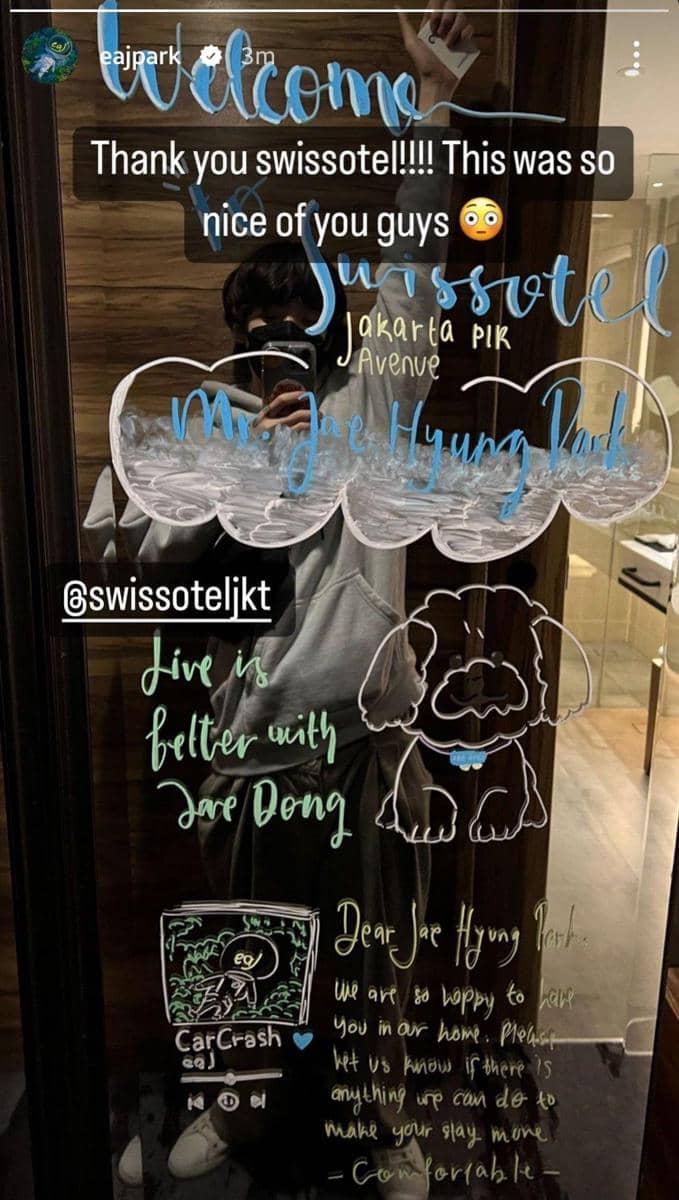 eajpark 3m
Welcome
Thank you swissotel!!!! This was so
nice of you guys 😳
to
Swissotel
Jakarta PIK
Avenue
Mr. Jae Hyung Park
@swissoteljkt
Live is
better with
Jae Dong
eaj
CarCrash 💙
eaj
Dear Jae Hyung Park.
We are so happy to have
you in our home. Please
let us know if there is
anything we can do to
make your stay more
- Comfortable -